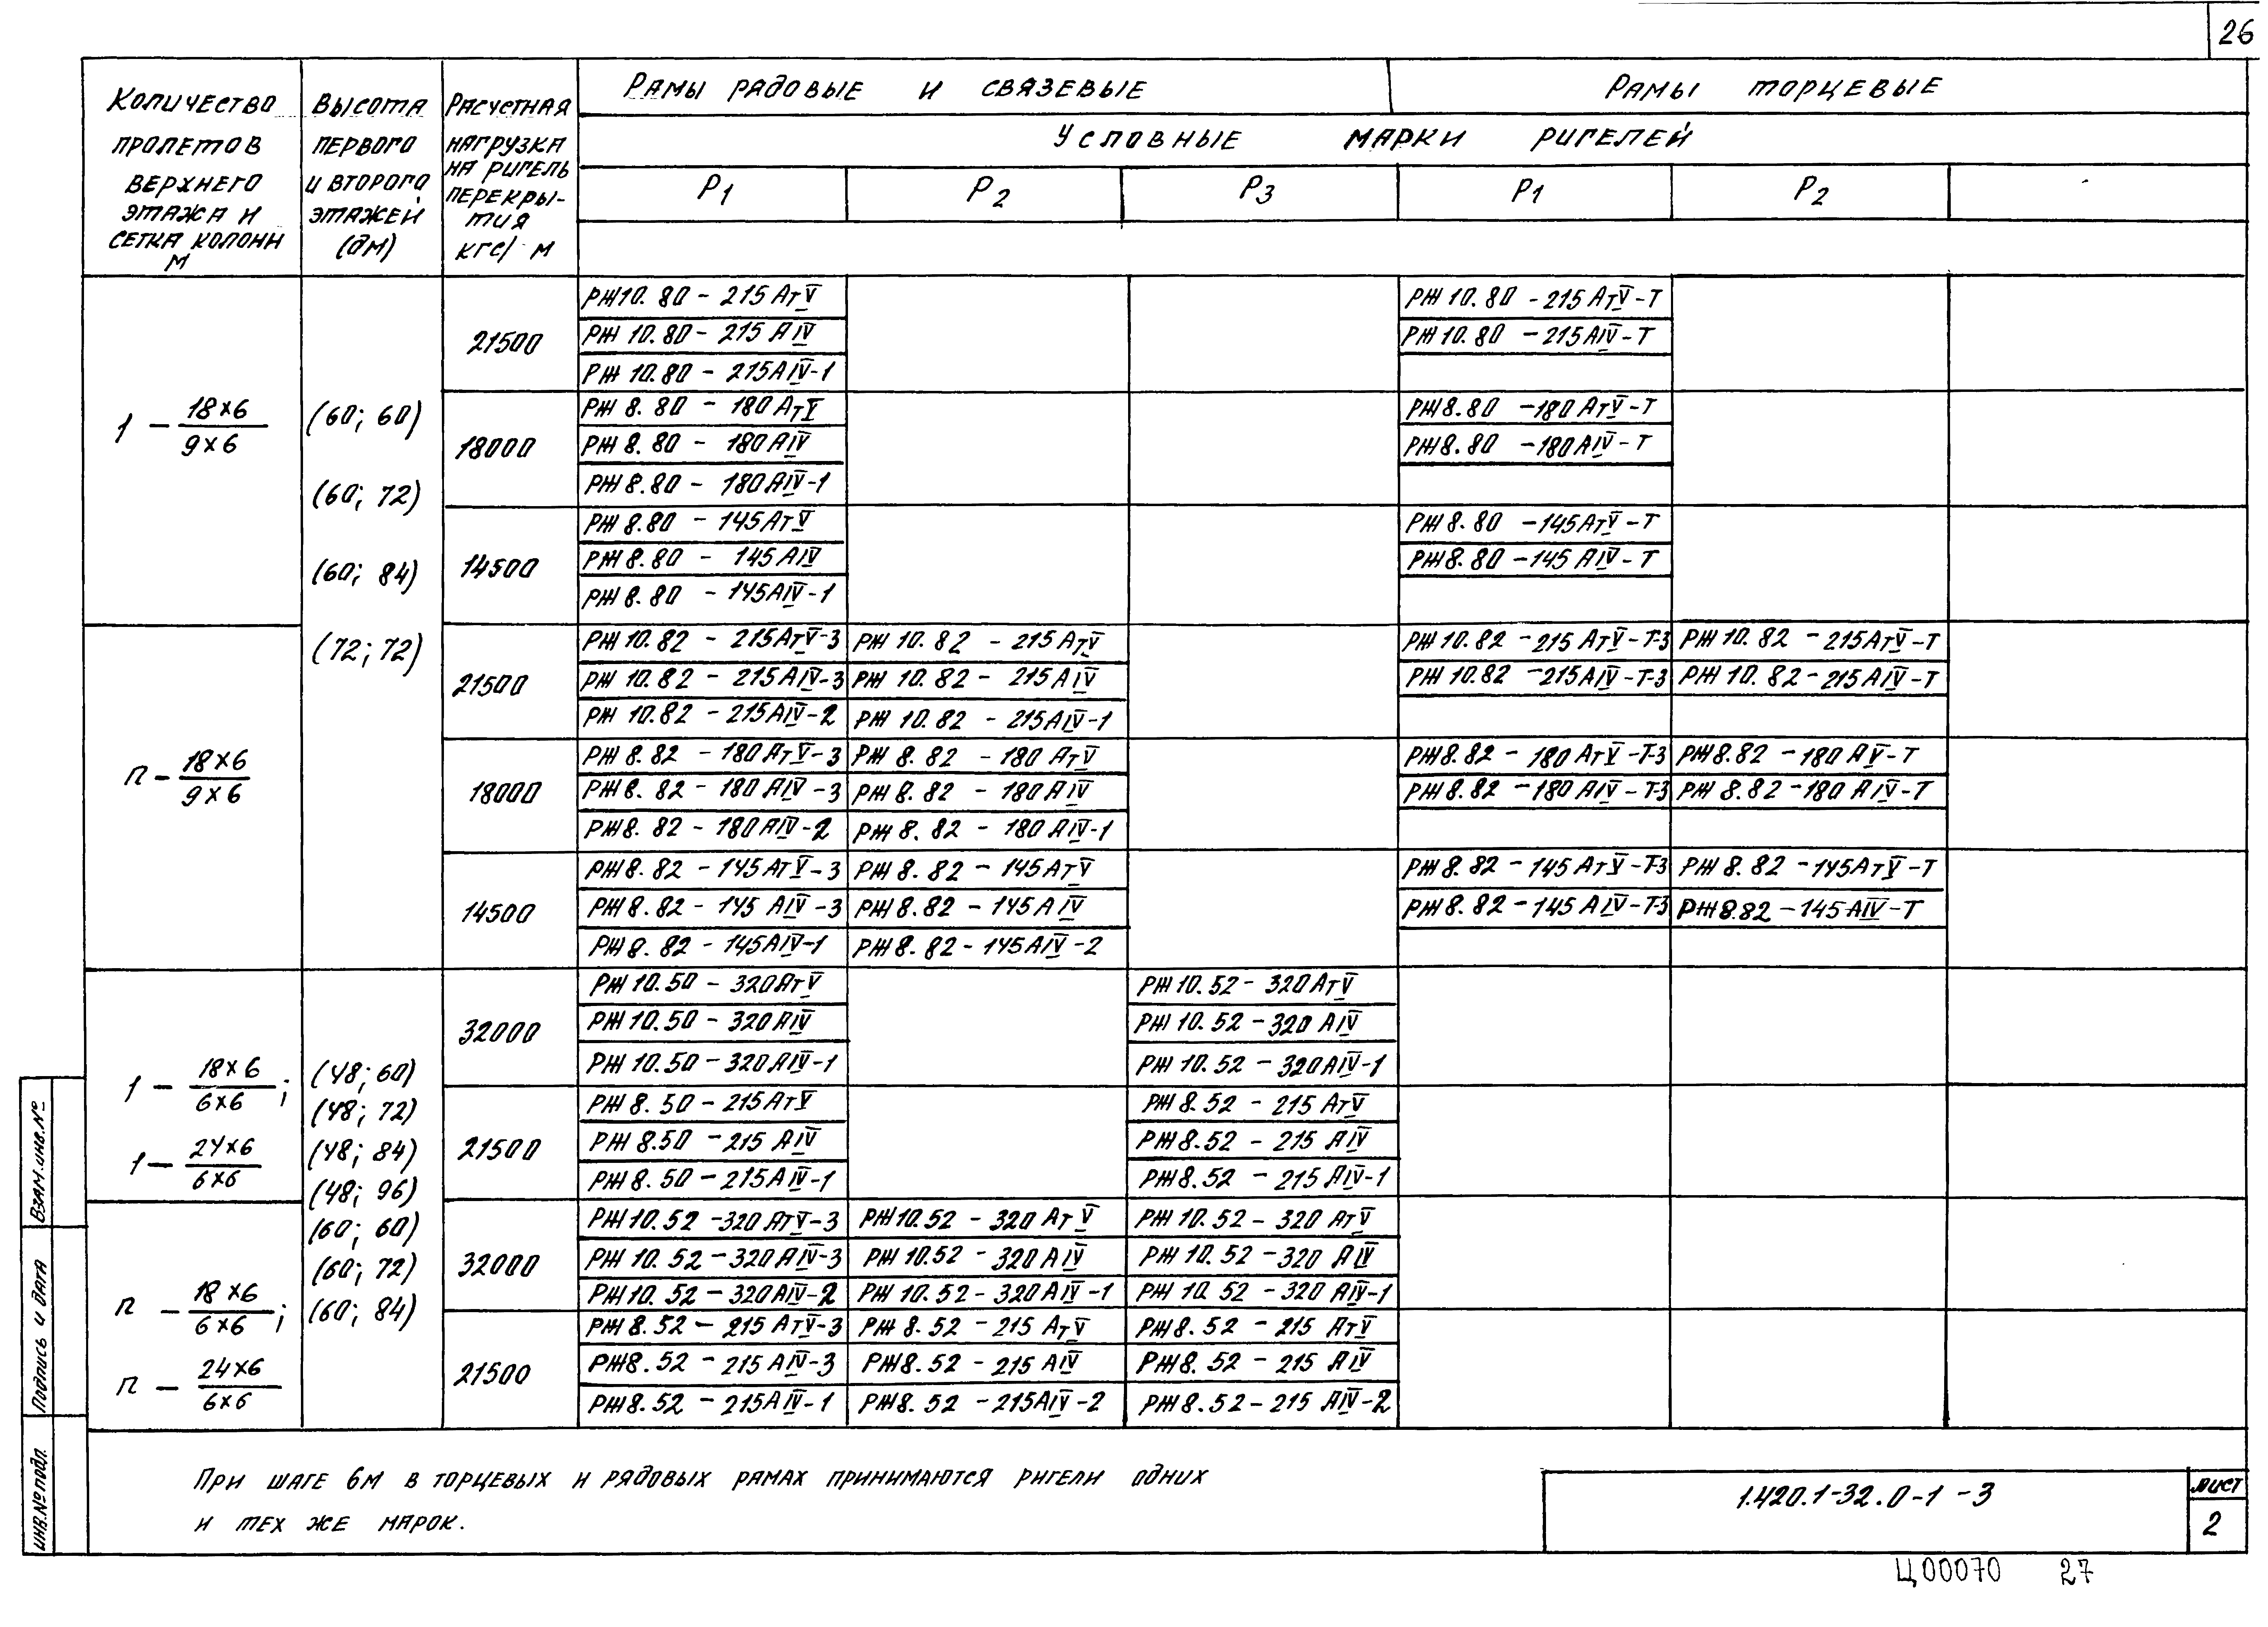 26
Количество пролетов верхнего этажа и сетка колонн м
Высота первого и второго этажей (дм)
Расчетная нагрузка на ригель перекрытия кгс/м
Рамы рядовые и связевые
Рамы торцевые
Условные марки ригелей
Р1 Р2 Р3 Р1 Р2
1 – 18×6 / 9×6
(60; 60)
(60; 72)
(60; 84)
(72; 72)
21500
РЖ10.80 – 215 АтV РЖ 10.80 – 215 АтV–Т
РЖ 10.80 – 215 АIV РЖ 10.80 – 215АIV–Т
РЖ 10.80 – 215АIV–1
18000
РЖ 8.80 – 180 АтV РЖ8.80 – 180 АтV–Т
РЖ 8.80 – 180 АIV РЖ8.80 – 180АIV–Т
РЖ 8.80 – 180АIV–1
14500
РЖ 8.80 – 145АтV РЖ 8.80 – 145АтV–Т
РЖ 8.80 – 145 АIV РЖ8.80 – 145 АIV–Т
РЖ 8.80 – 145АIV–1
п – 18×6 / 9×6
21500
РЖ 10.82 – 215АтV–3 РЖ 10.82 – 215АтV РЖ 10.82 – 215 АтV–Т-3 РЖ 10.82 – 215АтV–Т
РЖ 10.82 – 215АIV–3 РЖ 10.82 – 215АIV РЖ 10.82 – 215АIV–Т-3 РЖ 10.82 – 215АIV–Т
РЖ 10.82 – 215АIV–2 РЖ 10.82 – 215АIV–1
18000
РЖ 8.82 – 180 АтV–3 РЖ 8.82 – 180 АтV РЖ8.82 – 180 АтV–Т-3 РЖ8.82 – 180 АV–Т
РЖ8.82 – 180 АIV–3 РЖ8.82 – 180 АIV РЖ8.82 – 180 АIV–Т-3 РЖ 8.82 – 180 АIV–Т
РЖ8.82 – 180АIV–2 РЖ 8.82 – 180 АIV–1
14500
РЖ8.82 – 145АтV–3 РЖ 8.82 – 145АтV РЖ 8.82 – 145 АтV–Т-3 РЖ 8.82 – 145АтV–Т
РЖ8.82 – 145 АIV–3 РЖ8.82 – 145АIV РЖ8.82 – 145 АIV–Т-3 РЖ8.82 – 145 АIV–Т
РЖ 8.82 – 145АIV–1 РЖ8.82 – 145АIV–2
1 – 18×6 / 6×6;
1 – 24×6 / 6×6
(48; 60)
(48; 72)
(48; 84)
(48; 96)
(60; 60)
(60; 72)
(60; 84)
32000
РЖ 10.50 – 320АтV РЖ 10.52 – 320АтV
РЖ 10.50 – 320АIV РЖ 10.52 – 320 АIV
РЖ 10.50 – 320АIV–1 РЖ 10.52 – 320АIV–1
21500
РЖ 8.50 – 215АтV РЖ 8.52 – 215 АтV
РЖ 8.50 – 215 АIV РЖ8.52 – 215 АIV
РЖ 8.50 – 215АIV–1 РЖ8.52 – 215 АIV–1
п – 18×6 / 6×6;
п – 24×6 / 6×6
32000
РЖ10.52 – 320 АтV–3 РЖ10.52 – 320 АтV РЖ 10.52 – 320 АтV
РЖ 10.52 – 320АIV–3 РЖ 10.52 – 320 АIV РЖ 10.52 – 320 АIV
РЖ10.52 – 320АIV–2 РЖ 10.52 – 320АIV–1 РЖ 10.52 – 320 АIV–1
21500
РЖ 8.52 – 215 АтV–3 РЖ 8.52 – 215 АтV РЖ8.52 – 215 АтV
РЖ8.52 – 215 АIV–3 РЖ8.52 – 215 АIV РЖ8.52 – 215 АIV
РЖ8.52 – 215АIV–1 РЖ8.52 – 215АIV–2 РЖ8.52 – 215 АIV–2
При шаге 6м в торцевых и рядовых рамах принимаются ригели одних
и тех же марок.
1.420.1-32.0-1 -3
Лист
2
Ц00070 27
Взам.инв.№
Подпись и дата
Инв.№ подл.